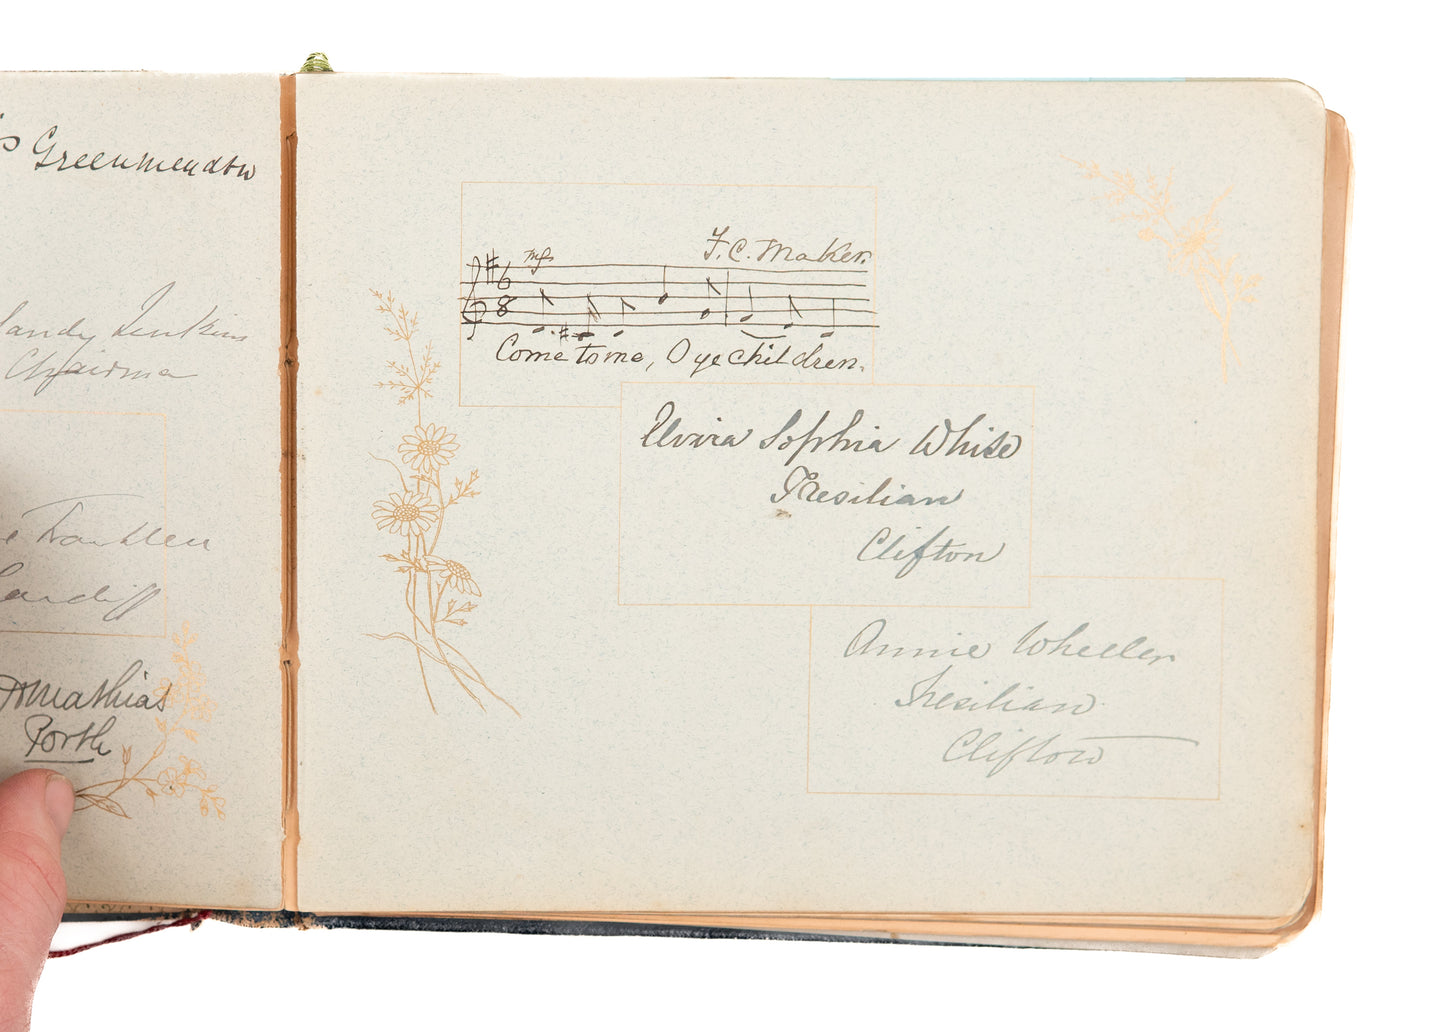 Greenmeadow
Jenkins
Chairman
Franklen
Cardiff
Porth
mp
F. C. Maker.
6
8
Come to me, O ye children.
Elvira Sophia White
Tresilian
Clifton
Annie Wheeler
Tresilian
Clifton